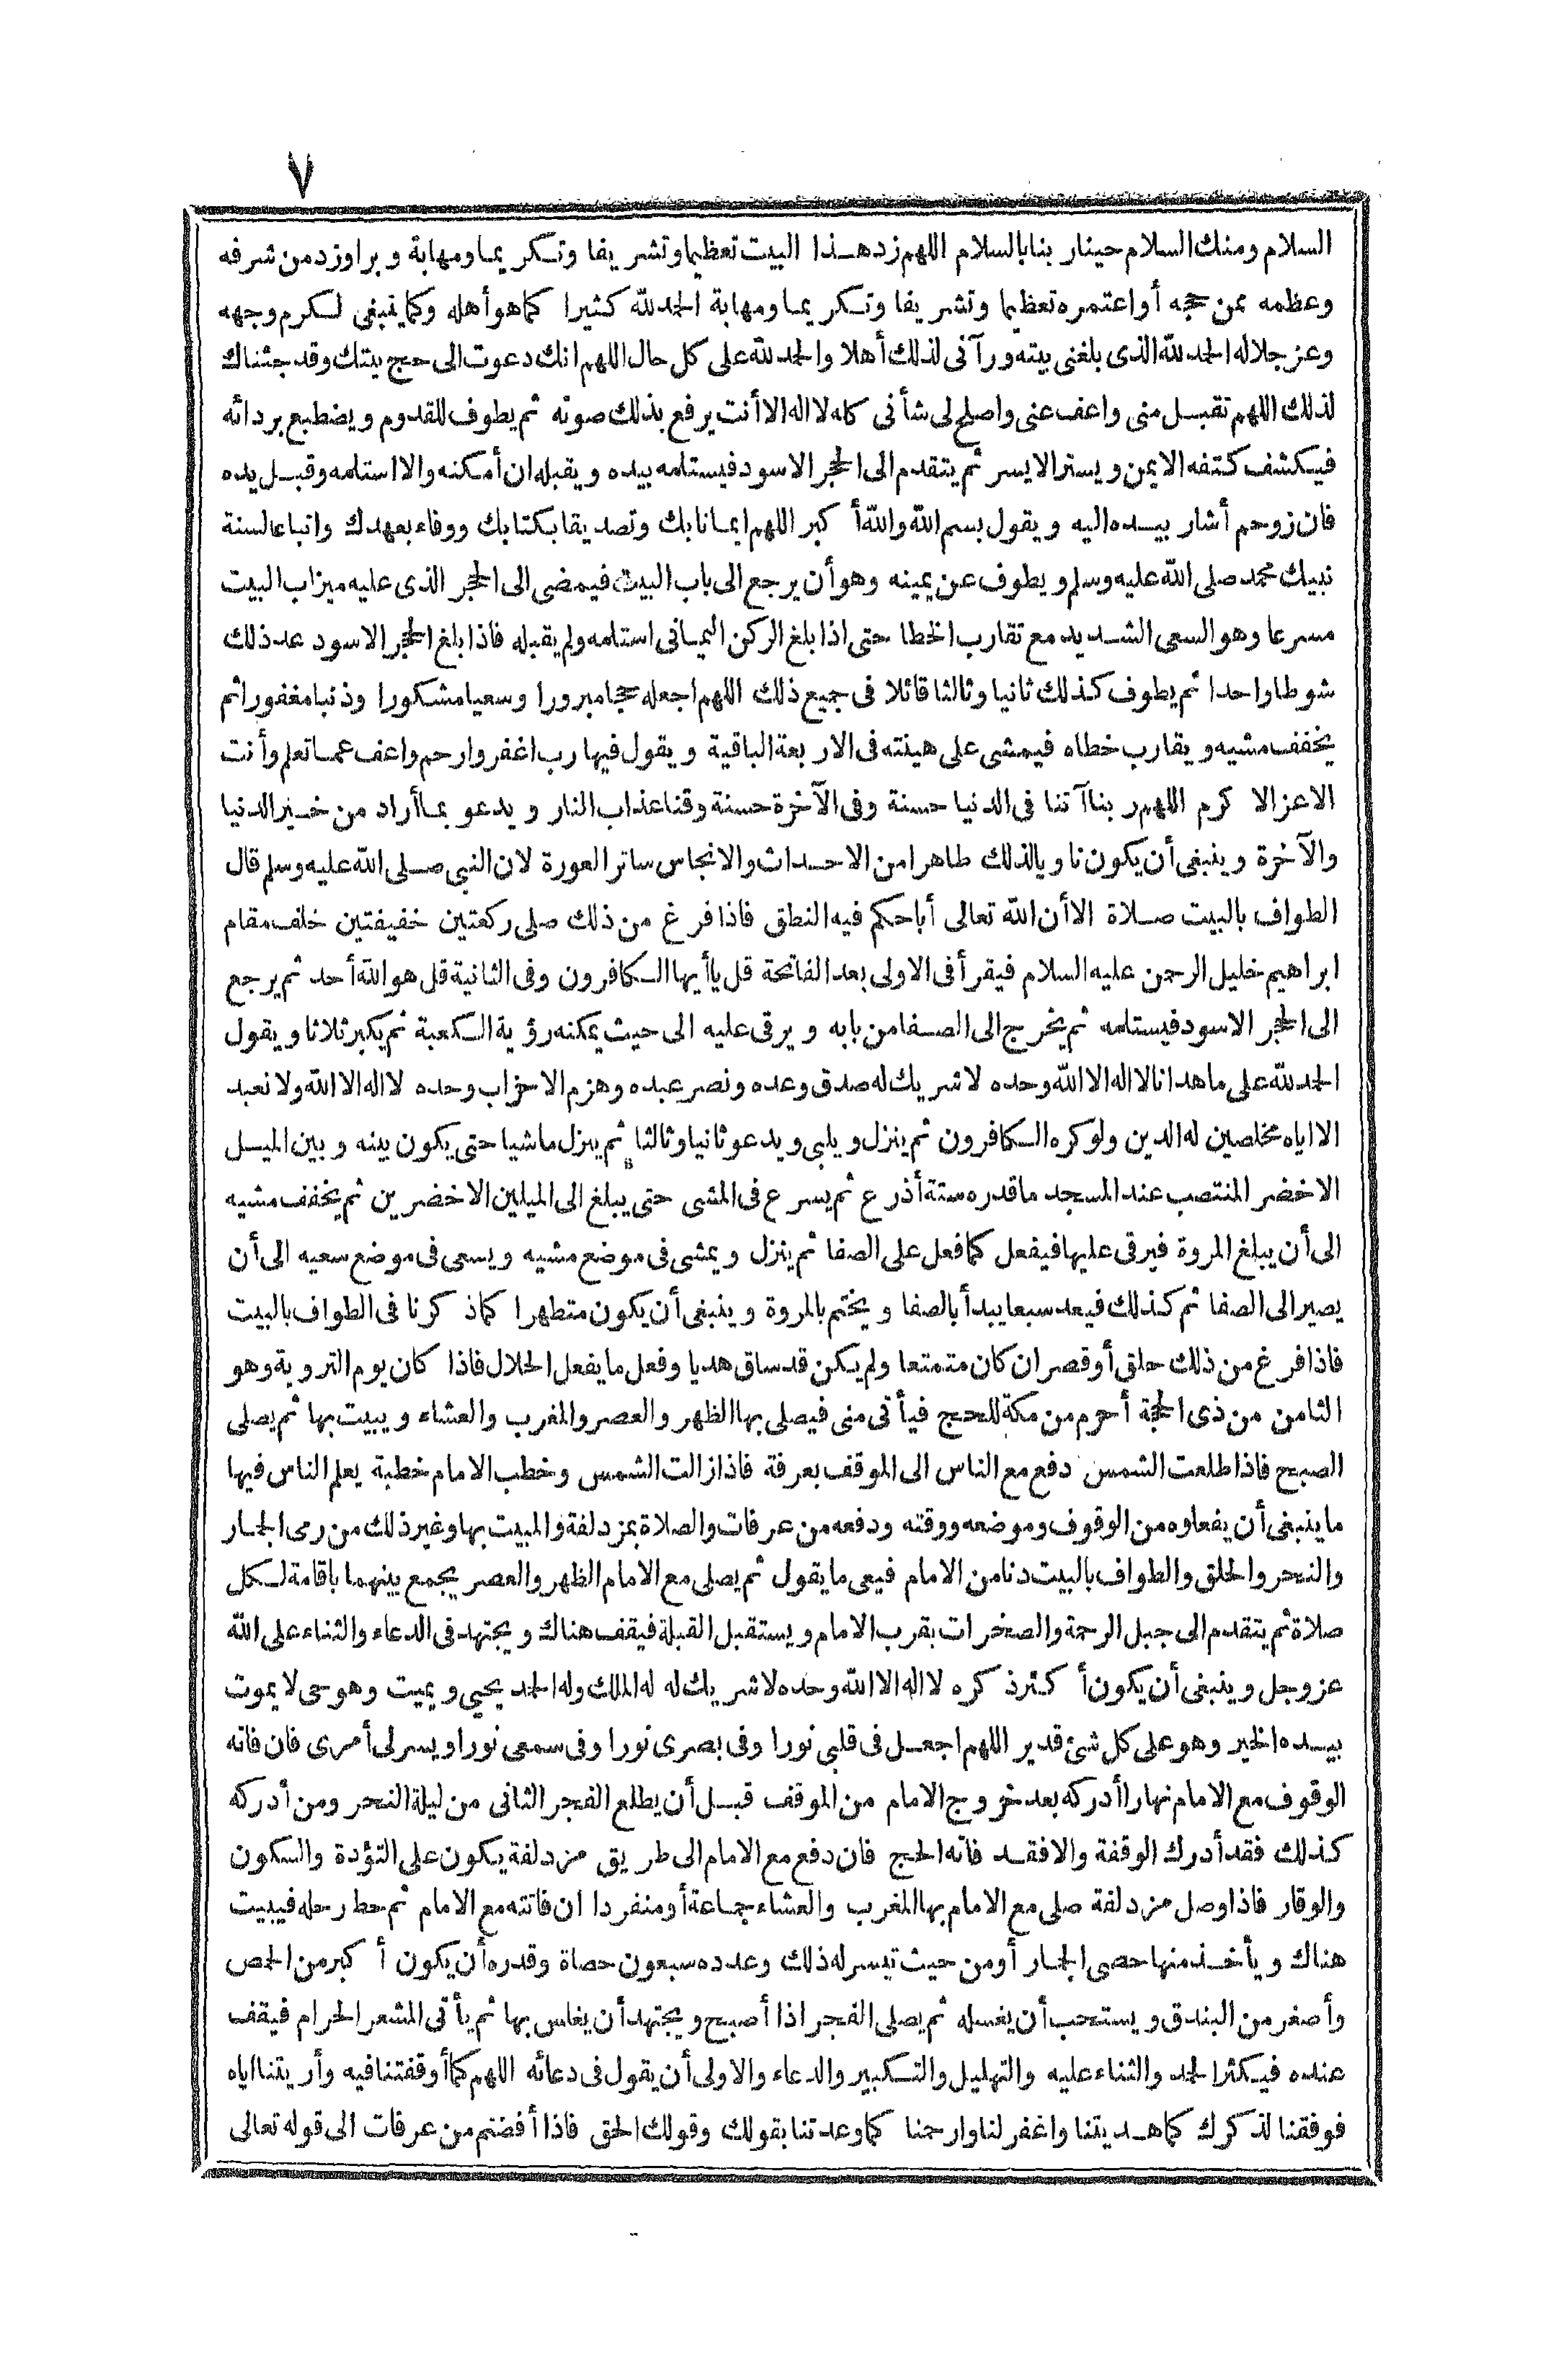 ٧
السلام ومنك السلام حينا ربنا بالسلام اللهم زد هذا البيت تعظيما وتشريفا وتكريما ومهابة وبرا وزد من شرفه
وعظمه ممن حجه أو اعتمره تعظيما وتشريفا وتكريما ومهابة الحمد لله كثيرا كما هو أهله وكما ينبغى لكرم وجهه
وعز جلاله الحمد لله الذى بلغنى بيته ورآنى لذلك أهلا والحمد لله على كل حال اللهم انك دعوت الى حج بيتك وقد جئناك
لذلك اللهم تقبل منى واعف عنى واصلح لى شأنى كله لا اله الا أنت يرفع بذلك صوته ثم يطوف للقدوم ويضطبع بردائه
فيكشف كتفه الايمن ويستر الايسر ثم يتقدم الى الحجر الاسود فيستلمه بيده ويقبله ان أمكنه والا استلمه وقبل يده
فان زوحم أشار بيده اليه ويقول بسم الله والله أكبر اللهم ايمانا بك وتصديقا بكتابك ووفاء بعهدك واتباعا لسنة
نبيك محمد صلى الله عليه وسلم ويطوف عن يمينه وهو أن يرجع الى باب البيت فيمضى الى الحجر الذى عليه ميزاب البيت
مسرعا وهو السعى الشديد مع تقارب الخطا حتى اذا بلغ الركن اليمانى استلمه ولم يقبله فاذا بلغ الحجر الاسود عد ذلك
شوطا واحدا ثم يطوف كذلك ثانيا وثالثا قائلا فى جميع ذلك اللهم اجعله حجا مبرورا وسعيا مشكورا وذنبا مغفورا ثم
يخفف مشيه ويقارب خطاه فيمشى على هينته فى الاربعة الباقية ويقول فيها رب اغفر وارحم واعف عما تعلم وأنت
الاعز الاكرم اللهم ربنا آتنا فى الدنيا حسنة وفى الآخرة حسنة وقنا عذاب النار ويدعو بما أراد من خير الدنيا
والآخرة وينبغى أن يكون ناويا لذلك طاهرا من الاحداث والانجاس ساتر العورة لان النبى صلى الله عليه وسلم قال
الطواف بالبيت صلاة الا أن الله تعالى أباحكم فيه النطق فاذا فرغ من ذلك صلى ركعتين خفيفتين خلف مقام
ابراهيم خليل الرحمن عليه السلام فيقرأ فى الاولى بعد الفاتحة قل يا أيها الكافرون وفى الثانية قل هو الله أحد ثم يرجع
الى الحجر الاسود فيستلمه ثم يخرج الى الصفا من بابه ويرقى عليه الى حيث يمكنه رؤية الكعبة ثم يكبر ثلاثا ويقول
الحمد لله على ما هدانا لا اله الا الله وحده لا شريك له صدق وعده ونصر عبده وهزم الاحزاب وحده لا اله الا الله ولا نعبد
الا اياه مخلصين له الدين ولو كره الكافرون ثم ينزل ويلبى ويدعو ثانيا وثالثا ثم ينزل ماشيا حتى يكون بينه وبين الميل
الاخضر المنتصب عند المسجد ما قدره ستة أذرع ثم يسرع فى المشى حتى يبلغ الى الميلين الاخضرين ثم يخفف مشيه
الى أن يبلغ المروة فيرقى عليها فيفعل كما فعل على الصفا ثم ينزل ويمشى فى موضع مشيه ويسعى فى موضع سعيه الى أن
يصير الى الصفا ثم كذلك فيعد سبعا يبدأ بالصفا ويختم بالمروة وينبغى أن يكون متطهرا كما ذكرنا فى الطواف بالبيت
فاذا فرغ من ذلك حلق أو قصر ان كان متمتعا ولم يكن قد ساق هديا وفعل ما يفعل الحلال فاذا كان يوم التروية وهو
الثامن من ذى الحجة أحرم من مكة للحج فيأتى منى فيصلى بها الظهر والعصر والمغرب والعشاء ويبيت بها ثم يصلى
الصبح فاذا طلعت الشمس دفع مع الناس الى الموقف بعرفة فاذا زالت الشمس وخطب الامام خطبة يعلم الناس فيها
ما ينبغى أن يفعلوه من الوقوف وموضعه ووقته ودفعه من عرفات والصلاة بمزدلفة والمبيت بها وغير ذلك من رمى الجمار
والنحر والحلق والطواف بالبيت دنا من الامام فيعى ما يقول ثم يصلى مع الامام الظهر والعصر يجمع بينهما باقامة لكل
صلاة ثم يتقدم الى جبل الرحمة والصخرات بقرب الامام ويستقبل القبلة فيقف هناك ويجتهد فى الدعاء والثناء على الله
عز وجل وينبغى أن يكون أكثر ذكره لا اله الا الله وحده لا شريك له له الملك وله الحمد يحيى ويميت وهو حى لا يموت
بيده الخير وهو على كل شئ قدير اللهم اجعل فى قلبى نورا وفى بصرى نورا وفى سمعى نورا ويسر لى أمرى فان فاته
الوقوف مع الامام نهارا أدركه بعد خروج الامام من الموقف قبل أن يطلع الفجر الثانى من ليلة النحر ومن أدركه
كذلك فقد أدرك الوقفة والا فقد فاته الحج فان دفع مع الامام الى طريق مزدلفة يكون على التؤدة والسكون
والوقار فاذا وصل مزدلفة صلى مع الامام بها المغرب والعشاء جماعة أو منفردا ان فاتته مع الامام ثم حط رحله فيبيت
هناك ويأخذ منها حصى الجمار أو من حيث تيسر له ذلك وعدده سبعون حصاة وقدره أن يكون أكبر من الحمص
وأصغر من البندق ويستحب أن يغسله ثم يصلى الفجر اذا أصبح ويجتهد أن يغلس بها ثم يأتى المشعر الحرام فيقف
عنده فيكثر الحمد والثناء عليه والتهليل والتكبير والدعاء والاولى أن يقول فى دعائه اللهم كما أوقفتنا فيه وأريتنا اياه
فوفقنا لذكرك كما هديتنا واغفر لنا وارحمنا كما وعدتنا بقولك وقولك الحق فاذا أفضتم من عرفات الى قوله تعالى